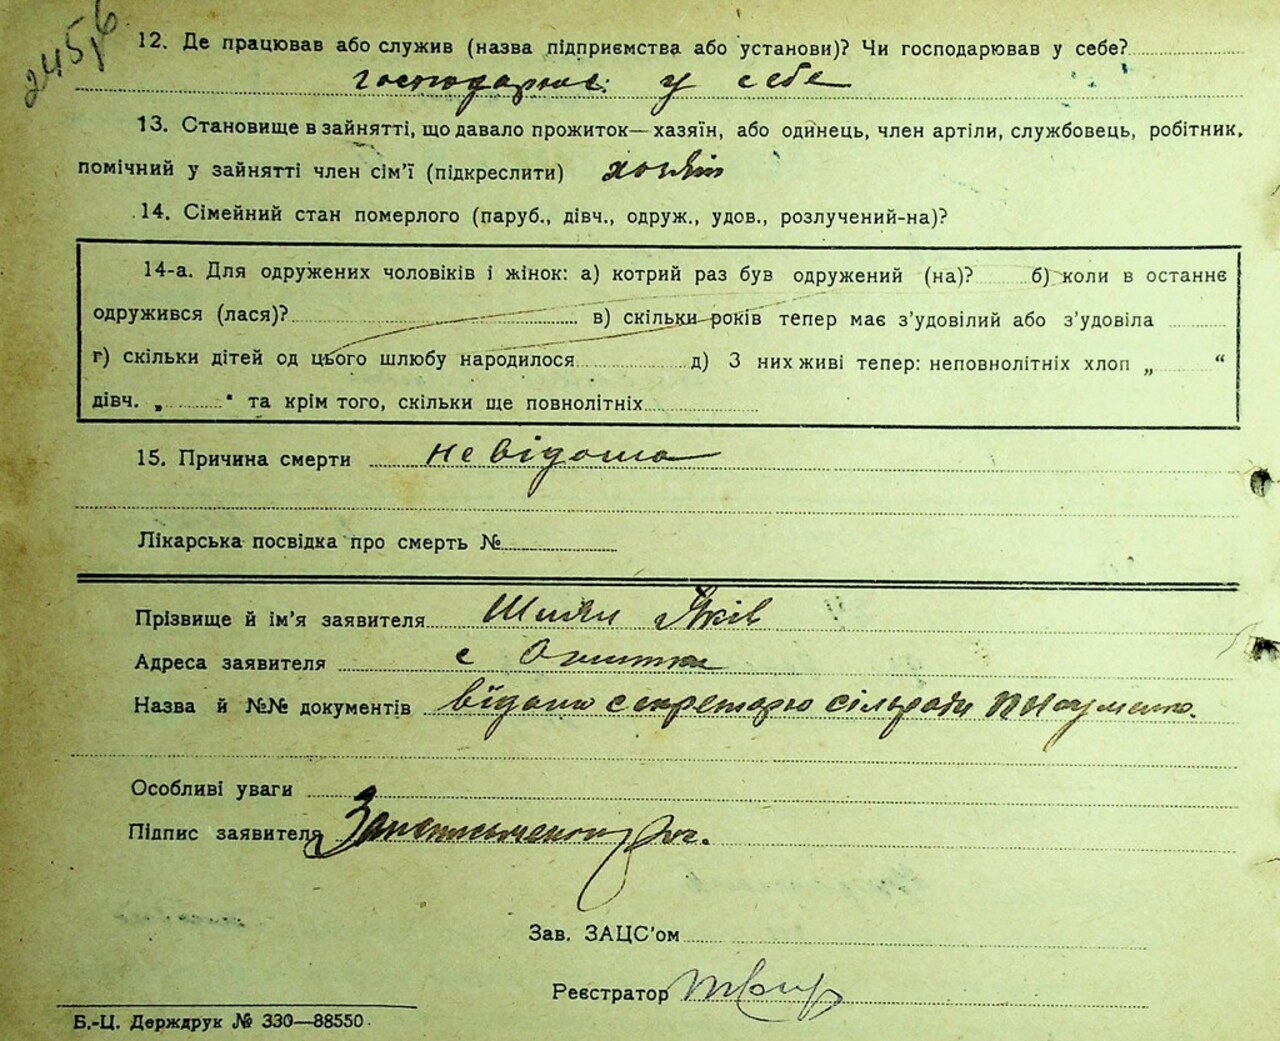 2456
12. Де працював або служив (назва підприємства або установи)? Чи господарював у себе?
господарює у себе
13. Становище в зайнятті, що давало прожиток—хазяїн, або одинець, член артіли, службовець, робітник,
помічний у зайнятті член сім'ї (підкреслити) хозяїн
14. Сімейний стан померлого (паруб., дівч., одруж., удов., розлучений-на)?
14-а. Для одружених чоловіків і жінок: а) котрий раз був одружений (на)? б) коли в останнє
одружився (лася)? в) скільки років тепер має з'удовілий або з'удовіла
г) скільки дітей од цього шлюбу народилося д) З них живі тепер: неповнолітніх хлоп „ “
дівч. „ “ та крім того, скільки ще повнолітніх
15. Причина смерти не відома
Лікарська посвідка про смерть №
Прізвище й ім'я заявителя Шиян Яків
Адреса заявителя с
Назва й №№ документів відомо секретарю сільради Науменко.
Особливі уваги
Підпис заявителя
Зав. ЗАЦС'ом
Реєстратор
Б.-Ц. Держдрук № 330—88550.